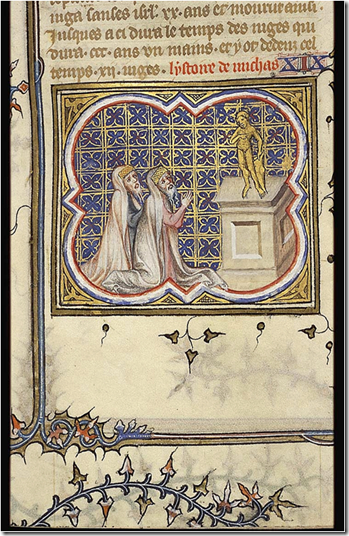 iuga sanses isrl. xx. ans et mourut
Jusques a ci dura le temps des iuges qui
dura .ccc. ans un mains. et y ot dedenz cel
temps .xij. iuges. lystoire de michas XIX